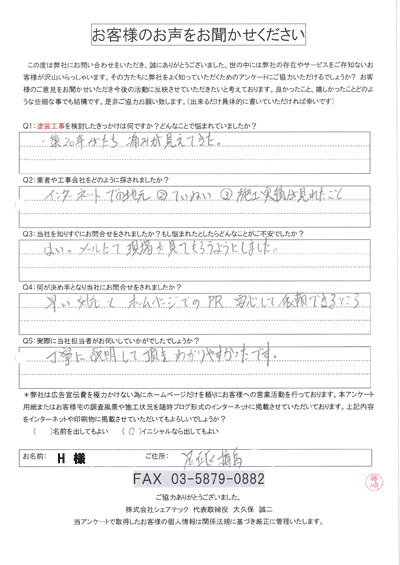 お客様のお声をお聞かせください
この度は弊社にお問い合わせをいただき、誠にありがとうございました。世の中には弊社の存在やサービスをご存知ないお
客様が沢山いらっしゃいます。その方たちに弊社をよく知っていただくためのアンケートにご協力いただけるでしょうか? お客
様のご意見をお聞かせいただき今後の活動に反映させていただきたいと考えております。良かったこと、嬉しかったことどのよ
うな些細な事でも結構です。是非ご協力お願い致します。(出来るだけ具体的に書いていただければ幸いです)
Q1:塗装工事を検討したきっかけは何ですか?どんなことで悩まれていましたか?
・築20年がたち 痛みが見えてきた。
Q2:業者や工事会社をどのように探されましたか?
インターネットで ①地元 ②ていねい ③施工実績が見れたこと
Q3:当社を知りすぐにお問合せをされましたか?もし悩まれたとしたらどんなことがご不安でしたか?
はい。メールにて現場を見てもらうようにしました。
Q4:何が決め手となり当社にお問合せをされましたか?
早い対応とホームページでのPR 安心して依頼できるところ
Q5:実際に当社担当者がお伺いしていかがでしたでしょうか?
丁寧に説明して頂き わかりやすかったです。
*弊社は広告宣伝費を極力かけない為にホームページだけを頼りにお客様への営業活動を行っております。本アンケート
用紙またはお客様宅の調査風景や施工状況を随時ブログ形式のインターネットに掲載させていただいております。上記内容
をインターネットや印刷物に掲載させていただいてもよろしいでしょうか?
( )名前を出してもよい (O)イニシャルなら出してもよい
お名前: H 様 ご住所: 足立区梅島
FAX 03-5879-0882
ご協力ありがとうございました。
株式会社シェアテック 代表取締役 大久保 誠二
当アンケートで取得したお客様の個人情報は関係法規に基づき厳正に管理いたします。